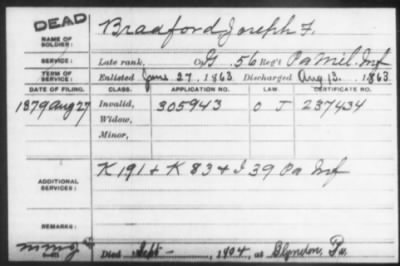 DEAD
NAME OF SOLDIER: Bradford Joseph F.
SERVICE: Late rank, Co G. 56 Reg't Pa Mil. Inf
TERM OF SERVICE: Enlisted June 27, 1863 Discharged Aug 13. 1863.
DATE OF FILING. CLASS. APPLICATION NO. LAW. CERTIFICATE NO.
1879 Aug 27 Invalid, 305943 O J 237434
Widow,
Minor,
ADDITIONAL SERVICES: K 191 + K 83 + I 39 Pa Inf
REMARKS:
Died Sept - , 1904, at Glyndon, Pa